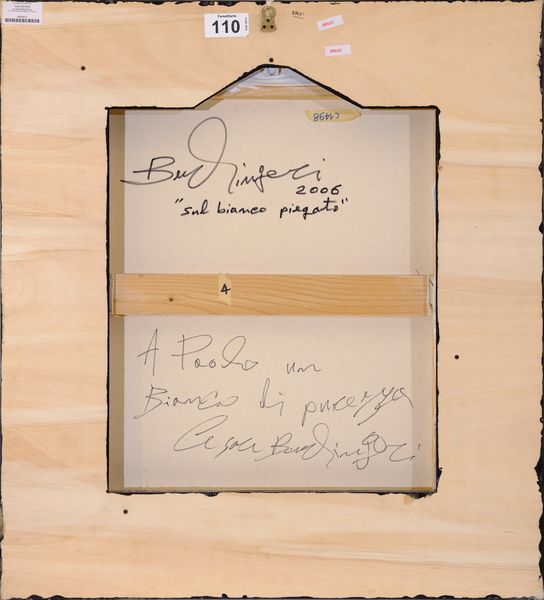 Farsettiarte
110
C1498
Berlingeri
2006
"sul bianco piegato"
4
A Paolo un
Bianco di purezza
Cesare Berlingeri